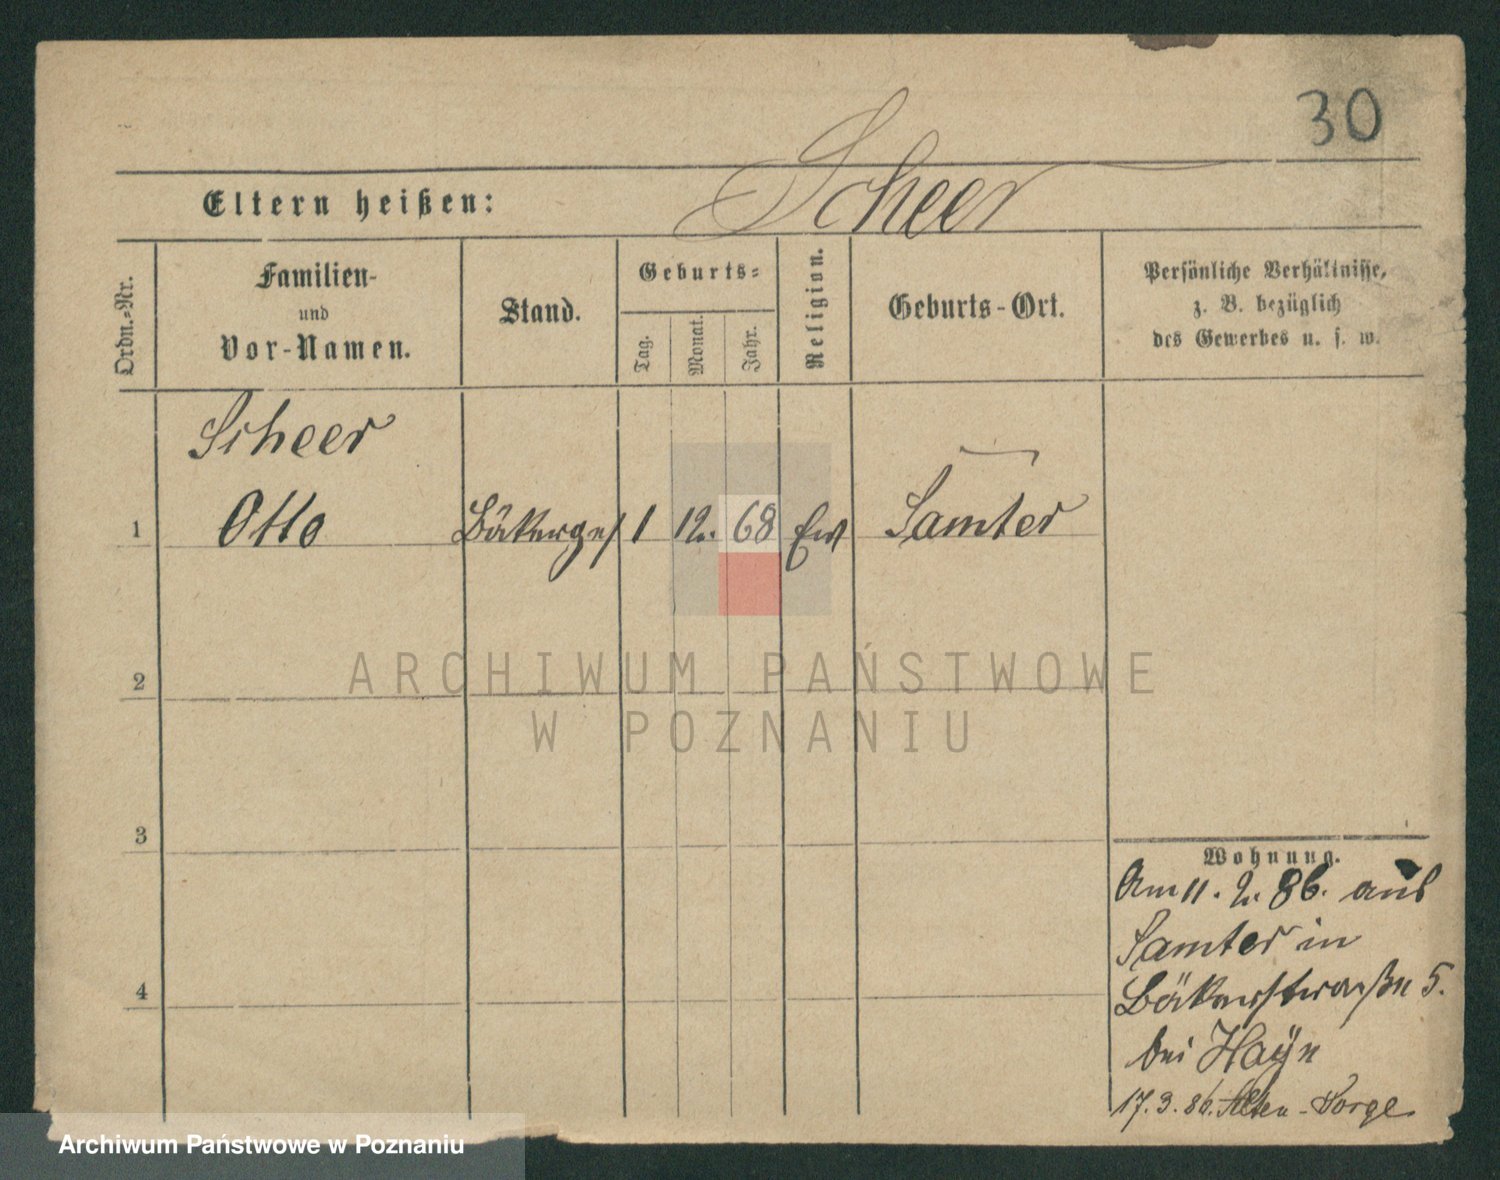 30
Scheer
Eltern heißen:
Ordn.=Nr.
Familien-
und
Vor-Namen.
Stand.
Geburts=
Tag.
Monat.
Jahr.
Religion.
Geburts-Ort.
Persönliche Verhältnisse,
z. B. bezüglich
des Gewerbes u. s. w.
Scheer
1 Otto Bäkerges 1 12. 68 Ev Samter
2
3
4
Wohnung.
Am 11. 2. 86. aus
Samter in
Bäkerstraße 5.
bei Hayn
17. 3. 86. Alten-Sorge
ARCHIWUM PAŃSTWOWE
W POZNANIU
Archiwum Państwowe w Poznaniu